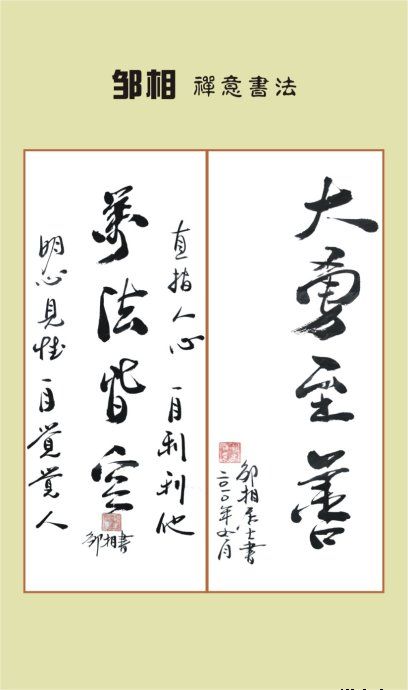 邹相 禪意書法
大勇至善
邹相居士書
二〇一〇年 月
直指人心 自利利他
萬法皆空
邹相書
明心見性 自覺覺人